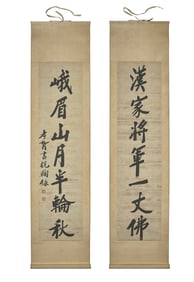 漢家將軍一丈佛
峨眉山月半輪秋